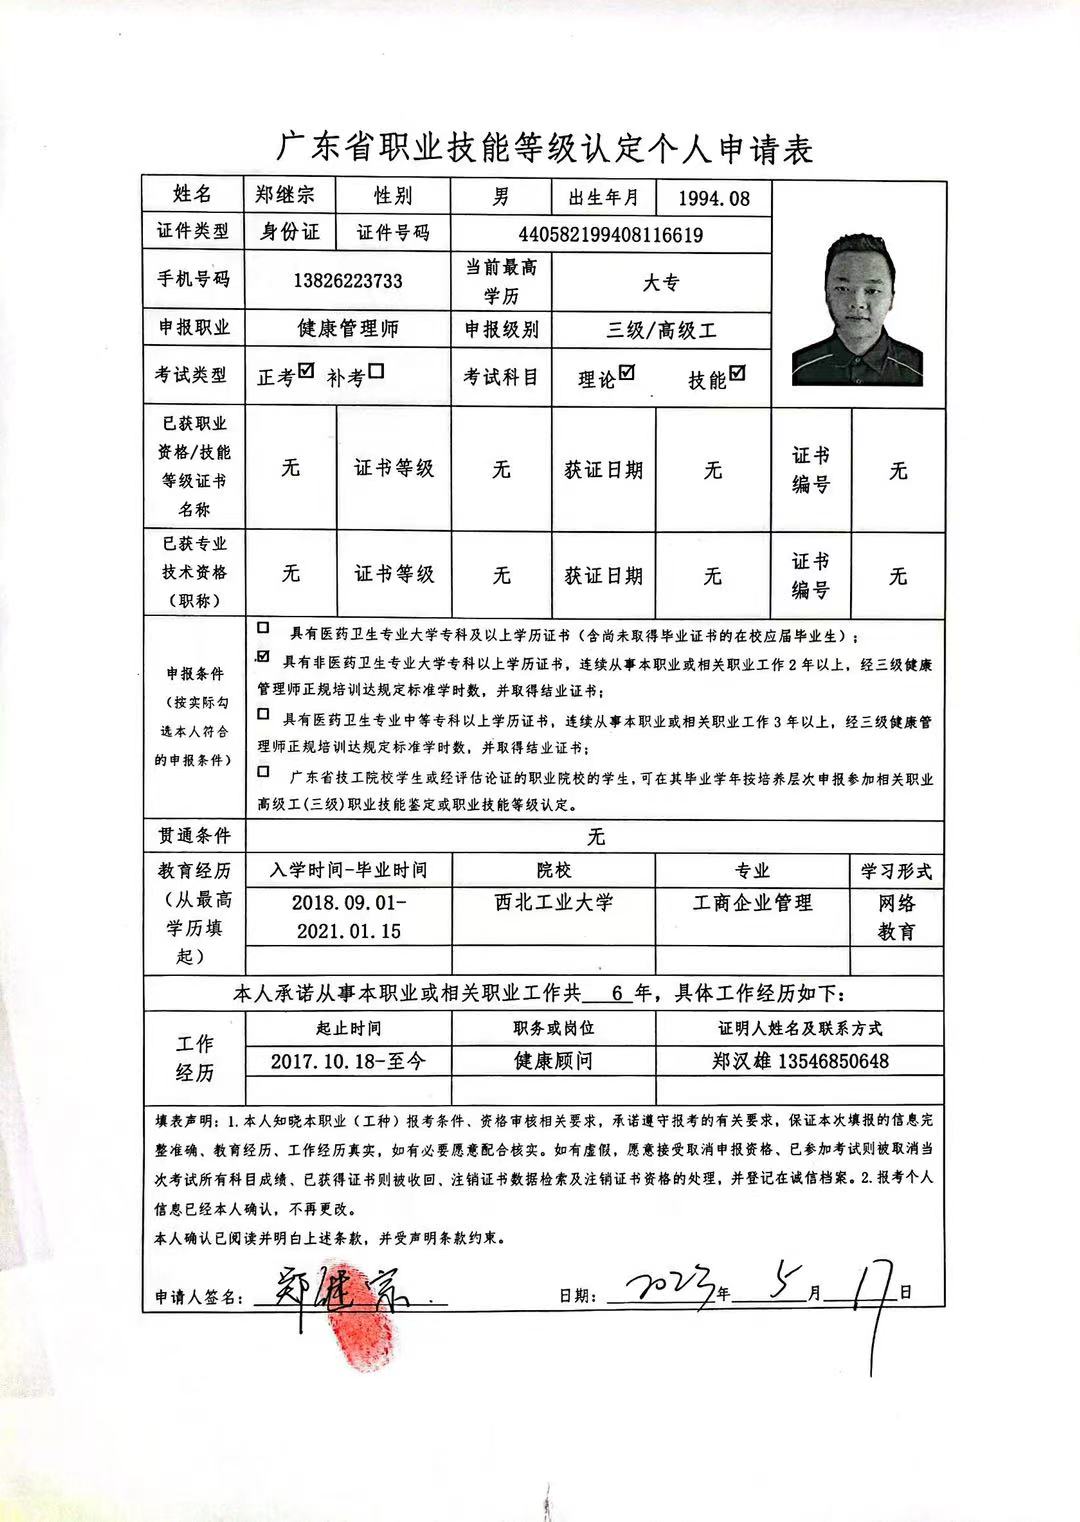 广东省职业技能等级认定个人申请表
姓名 郑继宗 性别 男 出生年月 1994.08
证件类型 身份证 证件号码 440582199408116619
手机号码 13826223733 当前最高学历 大专
申报职业 健康管理师 申报级别 三级/高级工
考试类型 正考☑ 补考☐ 考试科目 理论☑ 技能☑
已获职业
资格/技能
等级证书
名称
无 证书等级 无 获证日期 无 证书编号 无
已获专业
技术资格
（职称）
无 证书等级 无 获证日期 无 证书编号 无
申报条件
（按实际勾
选本人符合
的申报条件）
☐ 具有医药卫生专业大学专科及以上学历证书（含尚未取得毕业证书的在校应届毕业生）；
☑ 具有非医药卫生专业大学专科以上学历证书，连续从事本职业或相关职业工作2年以上，经三级健康
管理师正规培训达规定标准学时数，并取得结业证书；
☐ 具有医药卫生专业中等专科以上学历证书，连续从事本职业或相关职业工作3年以上，经三级健康管
理师正规培训达规定标准学时数，并取得结业证书；
☐ 广东省技工院校学生或经评估论证的职业院校的学生，可在其毕业学年按培养层次申报参加相关职业
高级工(三级)职业技能鉴定或职业技能等级认定。
贯通条件 无
教育经历
（从最高
学历填
起）
入学时间-毕业时间 院校 专业 学习形式
2018.09.01-
2021.01.15
西北工业大学 工商企业管理 网络
教育
本人承诺从事本职业或相关职业工作共 6 年，具体工作经历如下：
工作
经历
起止时间 职务或岗位 证明人姓名及联系方式
2017.10.18-至今 健康顾问 郑汉雄 13546850648
填表声明：1.本人知晓本职业（工种）报考条件、资格审核相关要求，承诺遵守报考的有关要求，保证本次填报的信息完
整准确、教育经历、工作经历真实，如有必要愿意配合核实。如有虚假，愿意接受取消申报资格、已参加考试则被取消当
次考试所有科目成绩、已获得证书则被收回、注销证书数据检索及注销证书资格的处理，并登记在诚信档案。2.报考个人
信息已经本人确认，不再更改。
本人确认已阅读并明白上述条款，并受声明条款约束。
申请人签名：郑继宗 日期：2023年5月17日